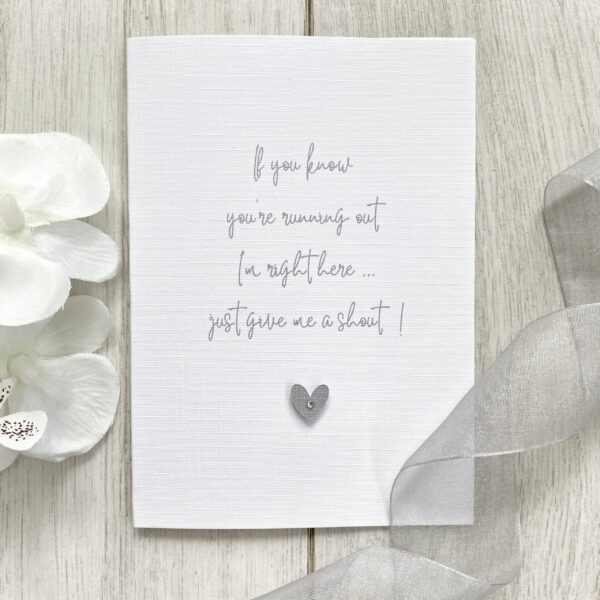 If you know
you're running out
I'm right here ...
just give me a shout !